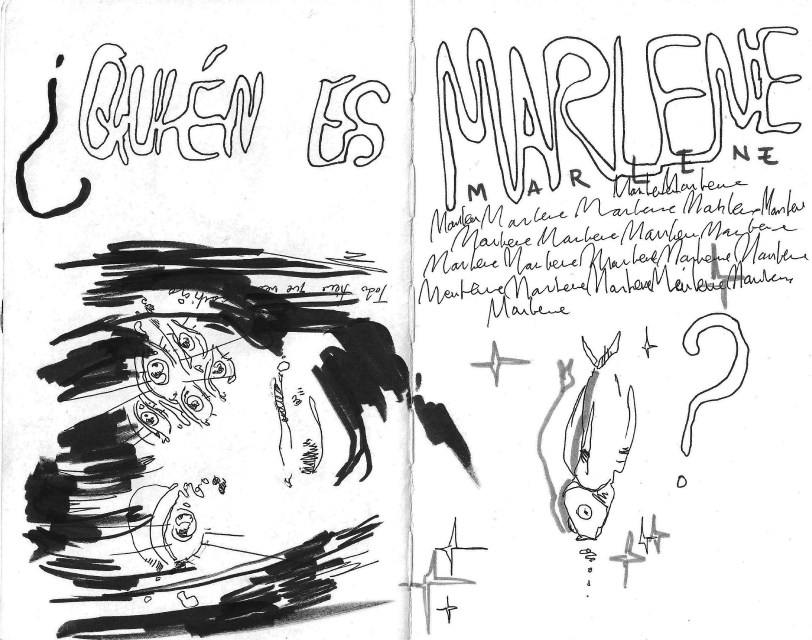 ¿QUIÉN ES MARLENE
MARLENE
Marlene Marlene
Marlene Marlene Marlene Marlene Marlene
Marlene Marlene Marlene Marlene
Marlene Marlene Marlene Marlene Marlene
Marlene Marlene Marlene Marlene Marlene
Marlene
?
Todo tiene que ver